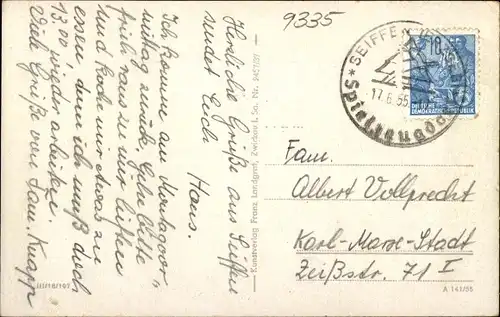 9335
Herzliche Grüße aus Seiffen
sendet Euch
Hans.
Ich komme am Montagvor,
mittag zurück. Gehe bitte
früh raus zu mir
und koche mir etwas zu
essen denn ich muß doch
13.00 wieder arbeiten.
Viele Grüße von Fam. Knapp
Kunstverlag Franz Landgraf, Zwickau i. Sa. Nr.
III/18/197
A 141/55
SEIFFEN
17.6.55
Spielzeug
10
DEUTSCHE
DEMOKRATISCHE REPUBLIK
Fam.
Albert Vollprecht
Karl-Marx-Stadt
Zeißstr. 71 I